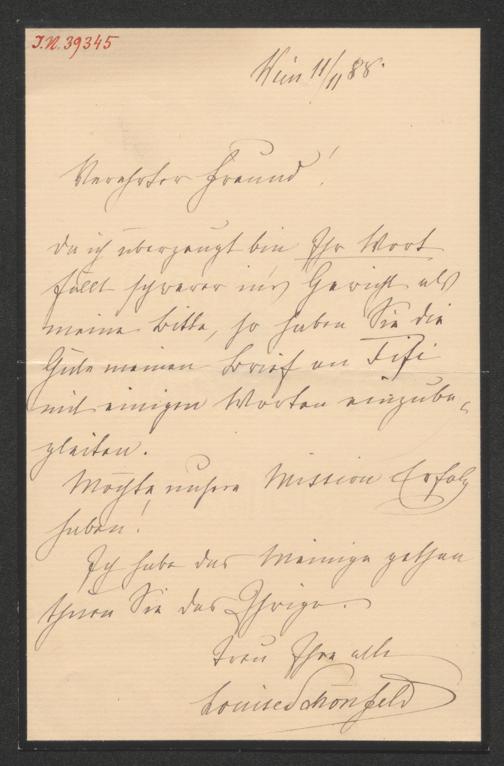 I.N. 39345
Wien 11/11 88.
Verehrter Freund!
Da ich überzeugt bin Ihr Wort
fällt schwerer in's Gewicht als
meine Bitte, so haben Sie die
Güte meinen Brief an Fifi
mit einigen Worten einzube-
gleiten.
Möchte unsere Mission Erfolg
haben!
Ich habe das Meinige gethan
thuen Sie das Ihrige.
Treu Ihre alte
Louise Schönfeld